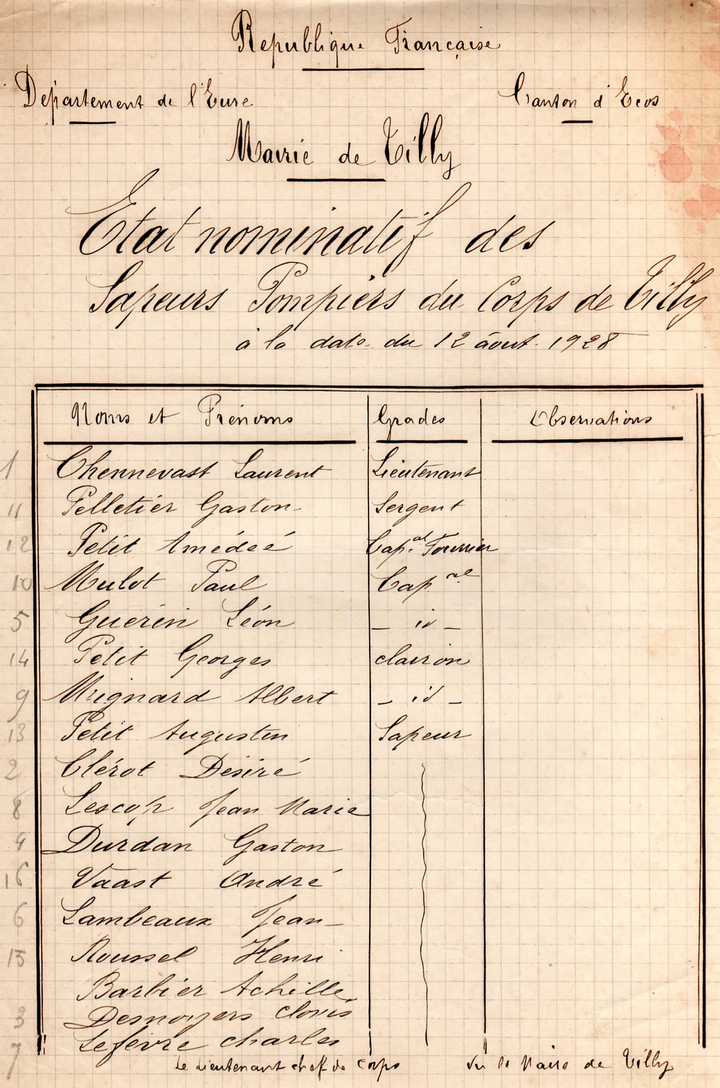 Republique Française
Département de l'Eure Canton d'Ecos
Mairie de Tilly
Etat nominatif des
Sapeurs Pompiers du Corps de Tilly
à la date du 12 août 1928
Noms et Prénoms Grades Observations
1 Chennevast Laurent Lieutenant
11 Pelletier Gaston Sergent
12 Petit Amédée Cap.al Fourrier
10 Mulot Paul Cap.al
5 Guérin Léon - id -
14 Petit Georges clairon
9 Mignard Albert - id -
13 Petit Augustin Sapeur
2 Clérot Désiré
8 Lescop Jean Marie
4 Durdan Gaston
16 Vaast André
6 Lambeaux Jean
15 Roussel Henri
Barbier Achille
3 Desnoyers Clovis
7 Lefèvre Charles
Le Lieutenant chef de Corps Vu le Maire de Tilly